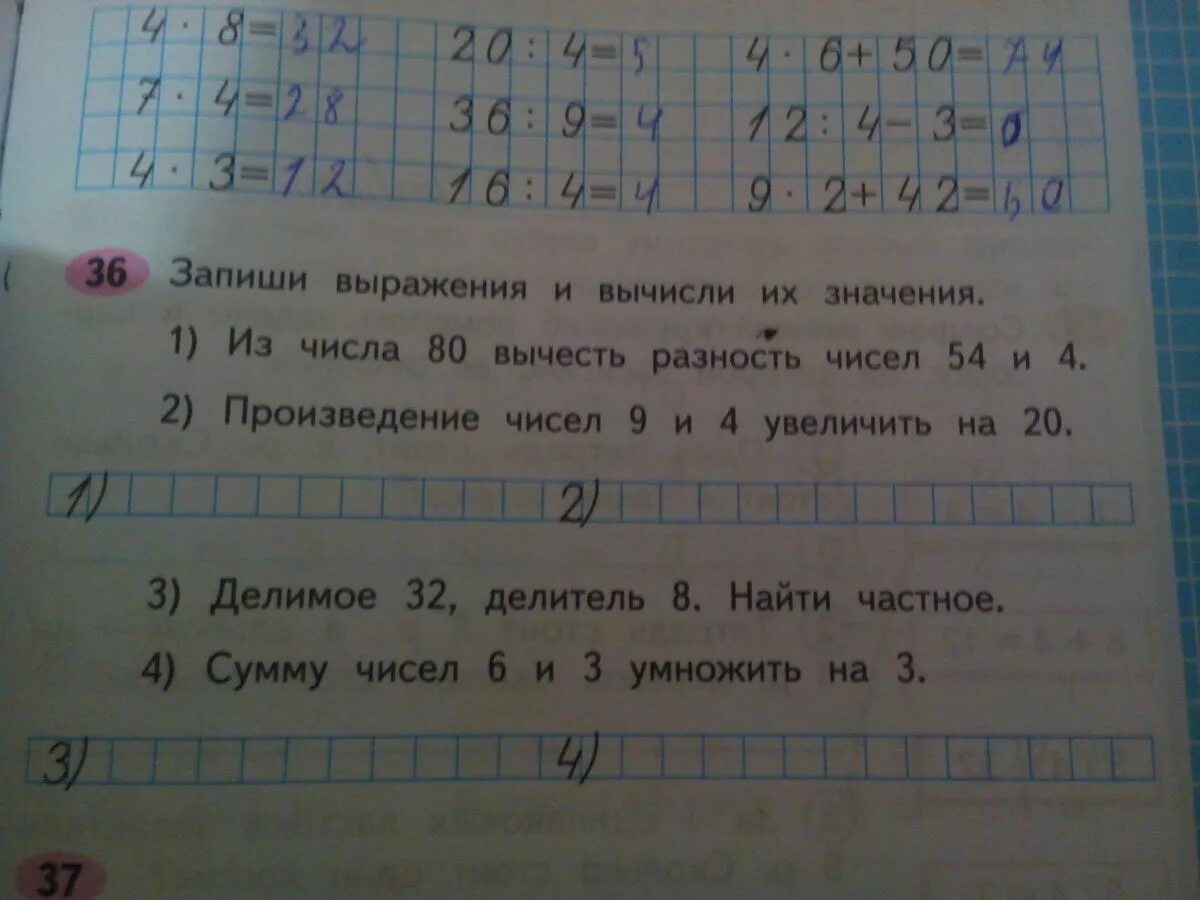 4 · 8 = 32 20 : 4 = 5 4 · 6 + 50 = 74
7 · 4 = 28 36 : 9 = 4 12 : 4 − 3 = 0
4 · 3 = 12 16 : 4 = 4 9 · 2 + 42 = 60
36 Запиши выражения и вычисли их значения.
1) Из числа 80 вычесть разность чисел 54 и 4.
2) Произведение чисел 9 и 4 увеличить на 20.
1) 2)
3) Делимое 32, делитель 8. Найти частное.
4) Сумму чисел 6 и 3 умножить на 3.
3) 4)
37